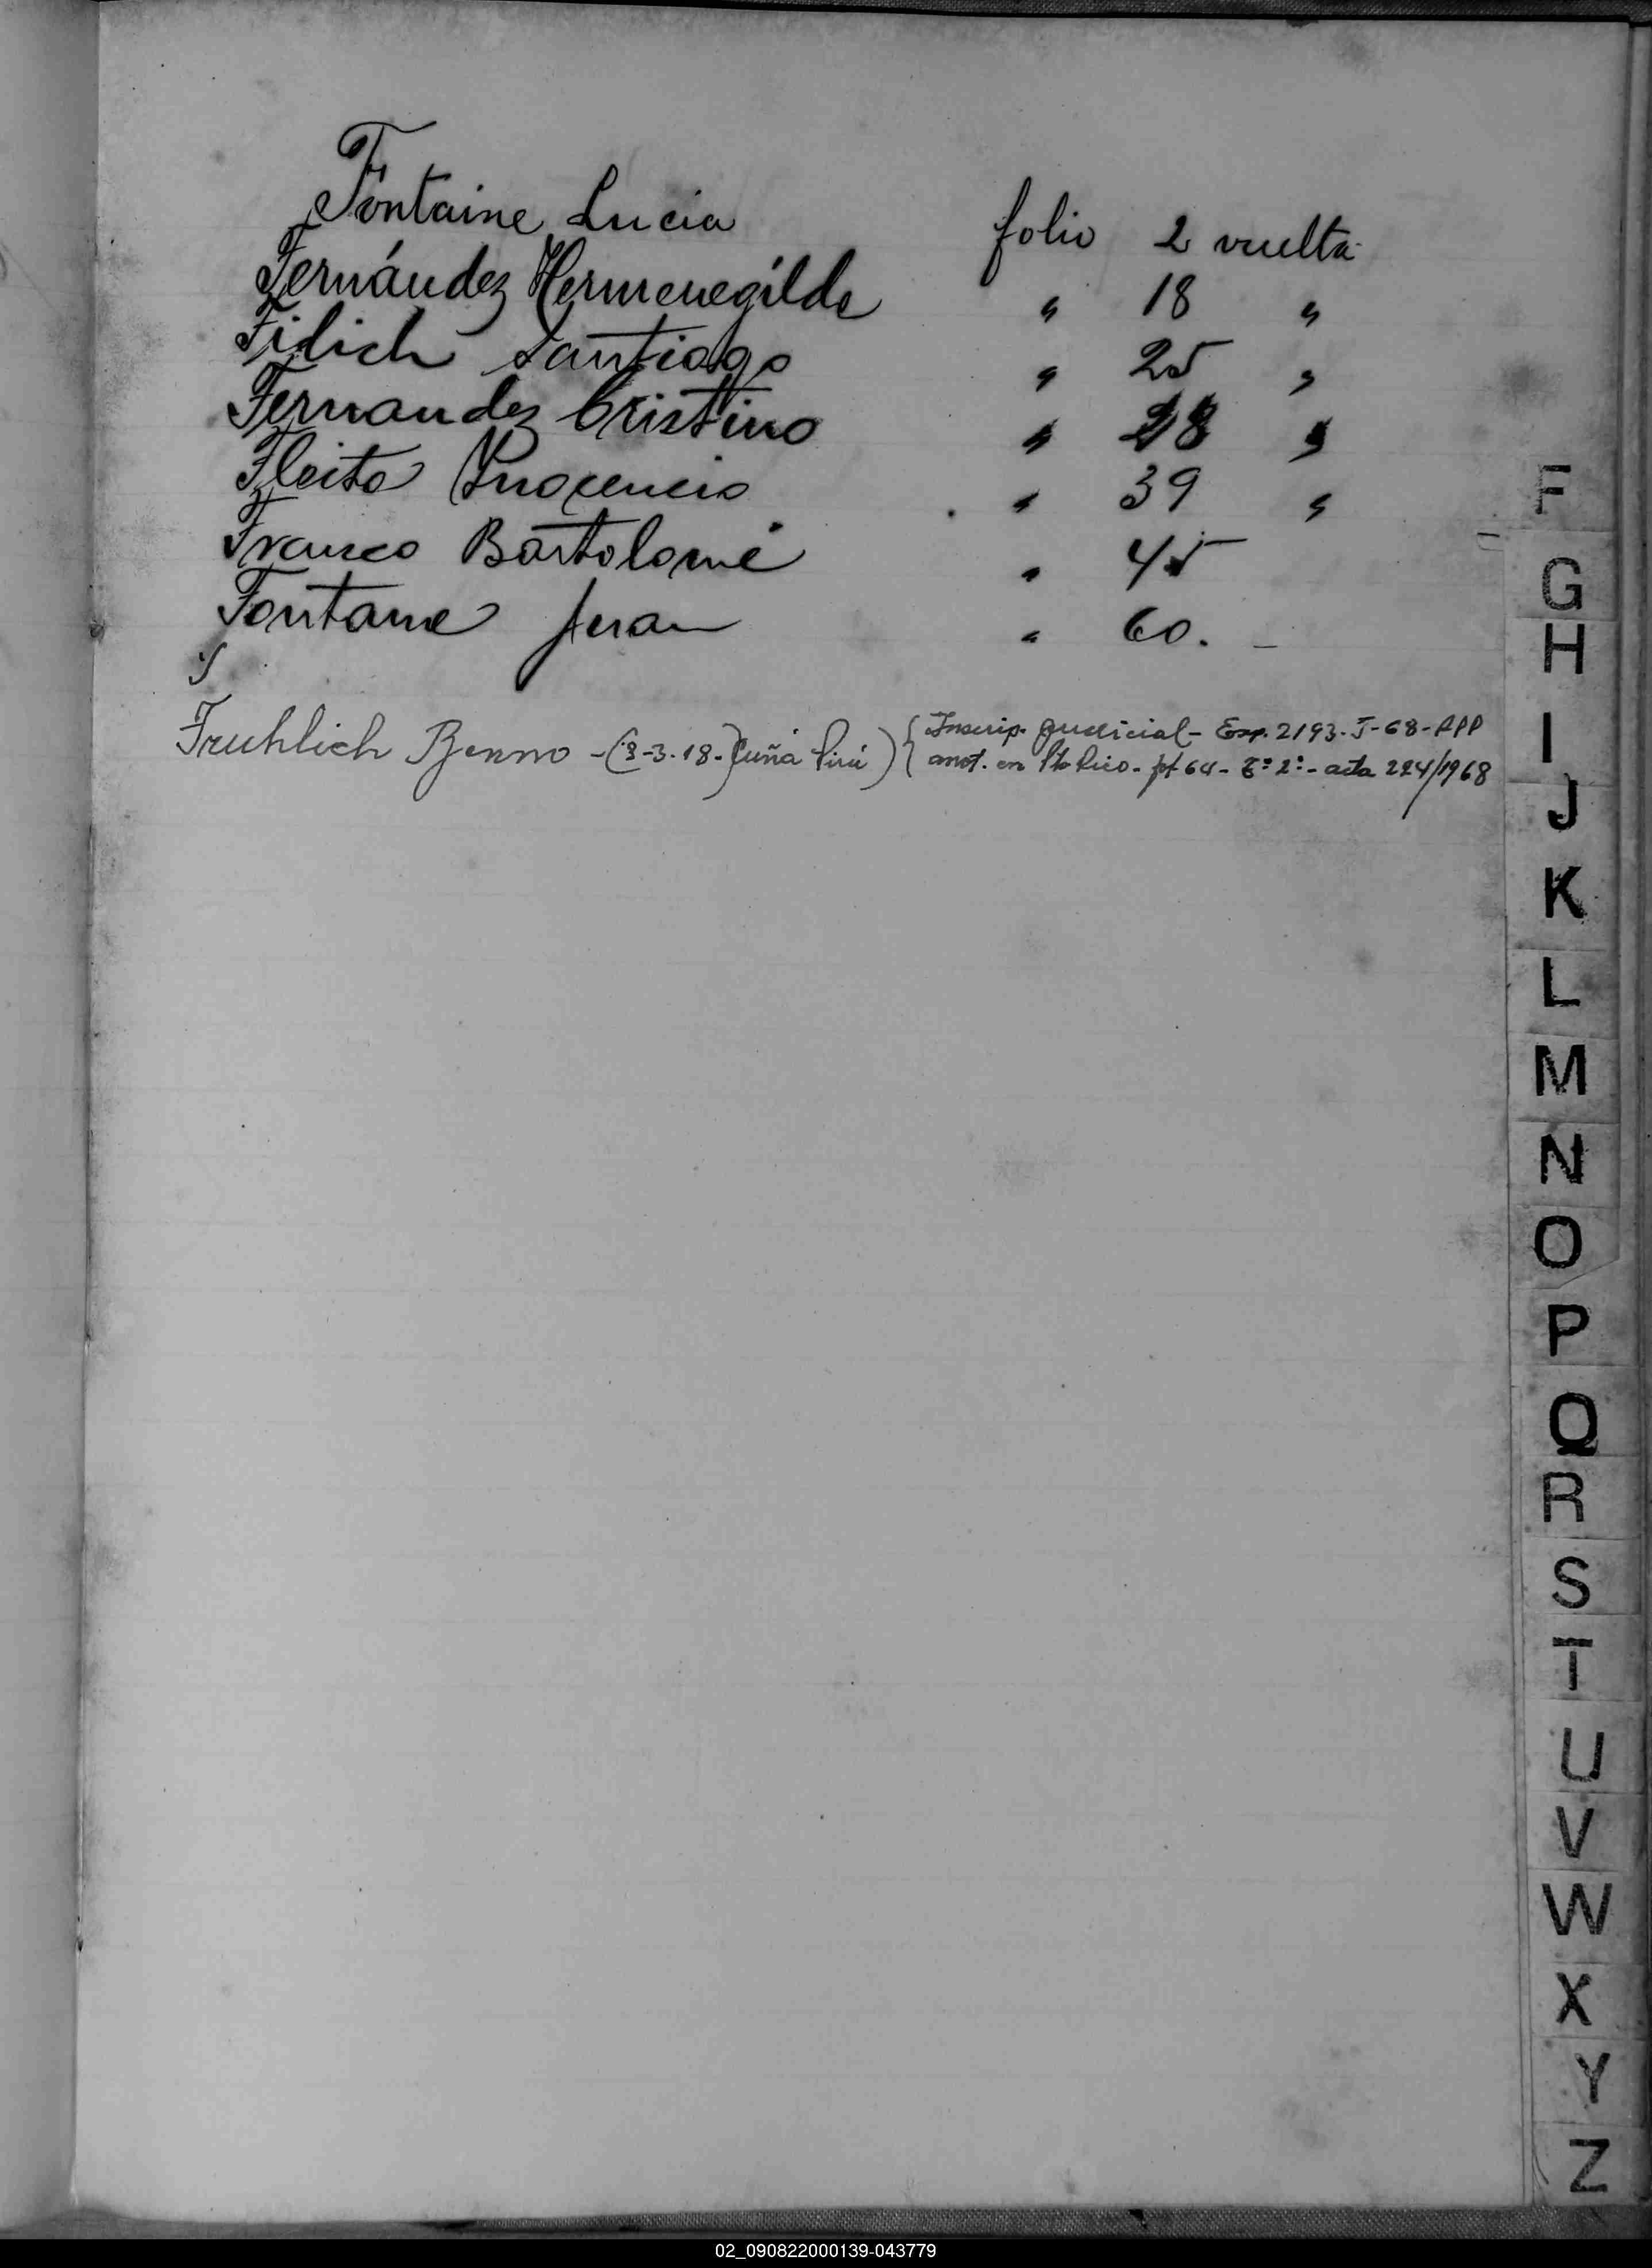 Fontaine Lucia folio 2 vuelta
Fernández Hermenegildo " 18 "
Filich Santiago " 25 "
Fernandez Cristino " 28 "
Fleita Inocencio " 39 "
Franco Bartolomé " 45
Fontane Juan " 60. —
Fruhlich Benno - (8-3-18-Cuña Pirú)
Inscrip. Judicial - Exp. 2193-J-68-APP
anot. en Pto Rico - fº 64 - Tº 2º - acta 224/1968
F
G
H
I
J
K
L
M
N
O
P
Q
R
S
T
U
V
W
X
Y
Z
02_090822000139-043779